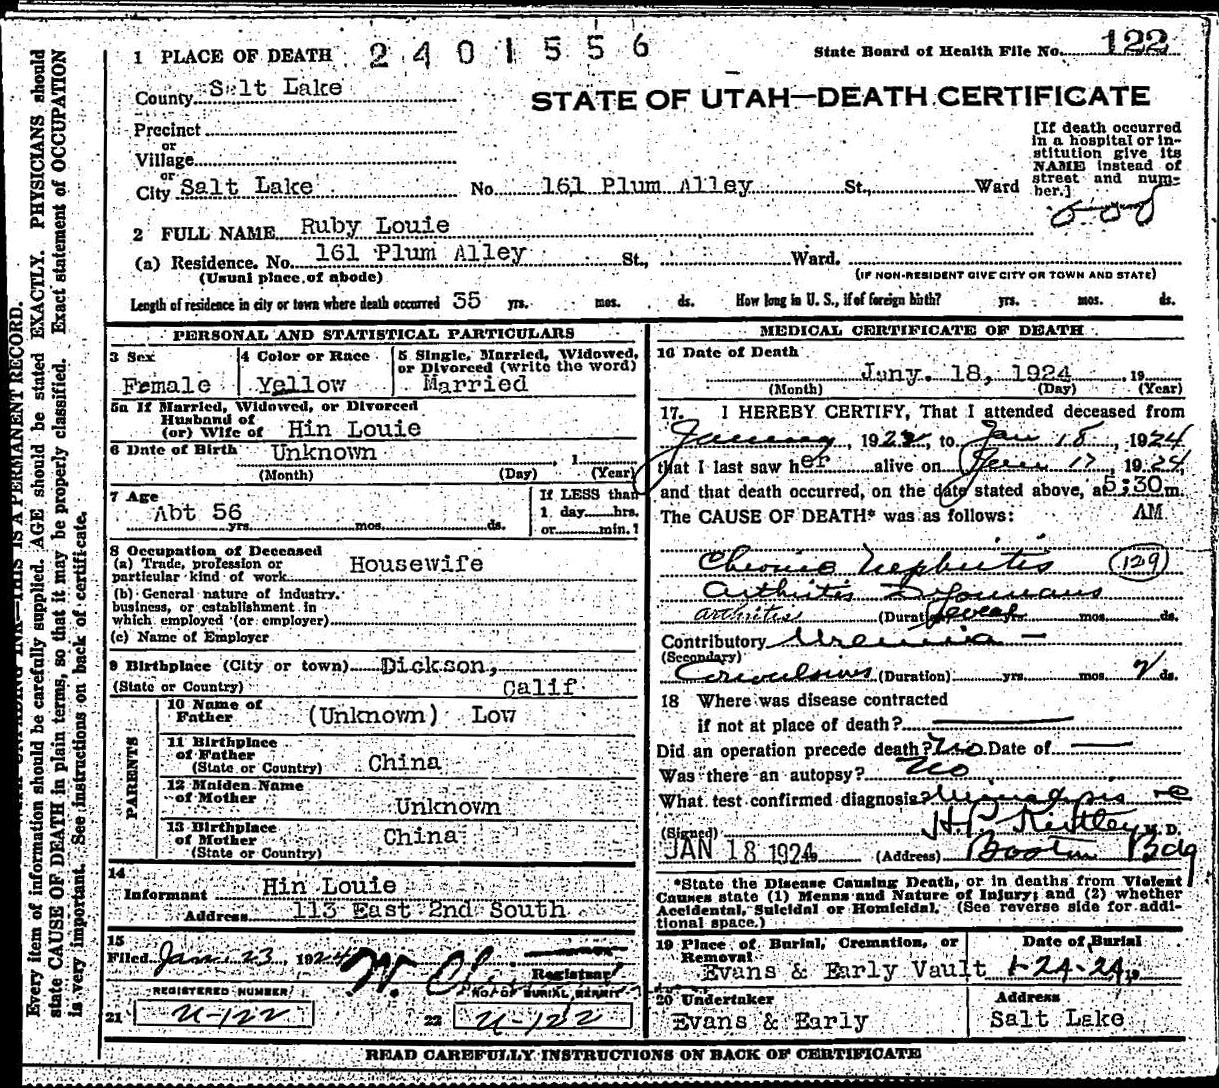 1 PLACE OF DEATH 2401556
State Board of Health File No. 122
County Salt Lake
STATE OF UTAH—DEATH CERTIFICATE
Precinct
or
Village
or
City Salt Lake No. 161 Plum Alley St., Ward
[If death occurred in a hospital or institution give its NAME instead of street and number.]
2 FULL NAME Ruby Louie
(a) Residence. No. 161 Plum Alley St., Ward.
(Usual place of abode) (IF NON-RESIDENT GIVE CITY OR TOWN AND STATE)
Length of residence in city or town where death occurred 35 yrs. mos. ds. How long in U. S., if of foreign birth? yrs. mos. ds.
PERSONAL AND STATISTICAL PARTICULARS
3 Sex
Female
4 Color or Race
Yellow
5 Single, Married, Widowed,
or Divorced (write the word)
Married
5a If Married, Widowed, or Divorced
Husband of
(or) Wife of Hin Louie
6 Date of Birth Unknown , 1
(Month) (Day) (Year)
7 Age
Abt 56
yrs. mos. ds.
If LESS than
1 day hrs.
or min.?
8 Occupation of Deceased
(a) Trade, profession or
particular kind of work Housewife
(b) General nature of industry,
business, or establishment in
which employed (or employer)
(c) Name of Employer
9 Birthplace (City or town) Dickson,
(State or Country) Calif
PARENTS
10 Name of
Father (Unknown) Low
11 Birthplace
of Father
(State or Country) China
12 Maiden Name
of Mother
Unknown
13 Birthplace
of Mother China
(State or Country)
14
Informant Hin Louie
Address 113 East 2nd South
15
Filed Jan 23 1924 W.
Registrar
REGISTERED NUMBER NO. OF BURIAL PERMIT
21 U-122 22 U-122
MEDICAL CERTIFICATE OF DEATH
16 Date of Death
Jany. 18, 1924 , 19
(Month) (Day) (Year)
17. I HEREBY CERTIFY, That I attended deceased from
January , 1922, to Jan 18 , 1924
that I last saw her alive on Jan 17 , 1924,
and that death occurred, on the date stated above, at 5:30 m.
The CAUSE OF DEATH* was as follows: AM
Chronic Nephritis 129
Arthritis Deformans
arthritis (Duration) several yrs. mos. ds.
Contributory Uremia —
(Secondary)
Convulsions (Duration) yrs. mos. ds.
18 Where was disease contracted
if not at place of death?
Did an operation precede death? No Date of —
Was there an autopsy? No
What test confirmed diagnosis
(Signed) H.P. Kirtley M. D.
JAN 18 1924 (Address) Boston Bdg
*State the Disease Causing Death, or in deaths from Violent
Causes state (1) Means and Nature of Injury; and (2) whether
Accidental, Suicidal or Homicidal. (See reverse side for addi-
tional space.)
19 Place of Burial, Cremation, or
Removal
Evans & Early Vault
Date of Burial
1-24-24
20 Undertaker
Evans & Early
Address
Salt Lake
READ CAREFULLY INSTRUCTIONS ON BACK OF CERTIFICATE
UNFADING INK—THIS IS A PERMANENT RECORD.
Every item of information should be carefully supplied. AGE should be stated EXACTLY. PHYSICIANS should
state CAUSE OF DEATH in plain terms, so that it may be properly classified. Exact statement of OCCUPATION
is very important. See instructions on back of certificate.